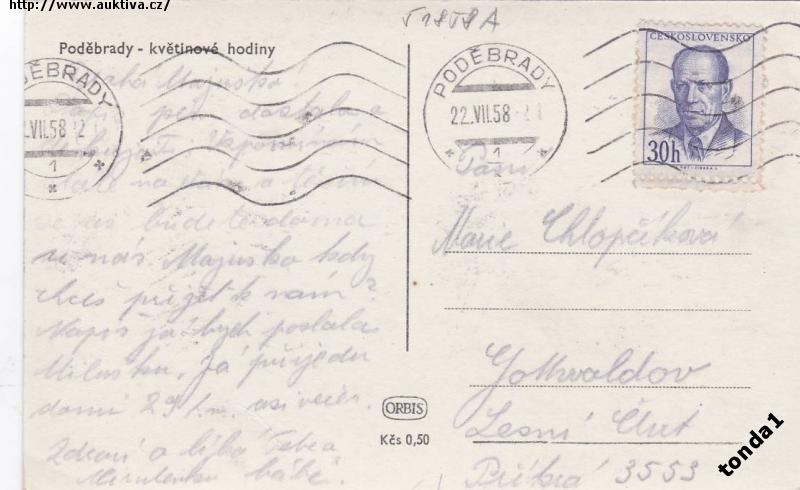 http://www.auktiva.cz/
V1858A
Poděbrady - květinové hodiny
PODĚBRADY
22.VII.58
1
PODĚBRADY
22.VII.58
1
ČESKOSLOVENSKO
30h
Majuško!
dostala a
Vzpomínám
stále na Vás a těším
se až budete doma
u nás. Majuško kdy
chceš přijet k nám?
Napiš já bych poslala
Milušku. Já přijedu
domů 29 t.m. asi večer.
Zdraví a líbá Tebe a
babi
Paní
Marie Chlopčíková
Gottwaldov
Lesní čtvrť
Příkrá 3553
ORBIS
Kčs 0,50
tonda1